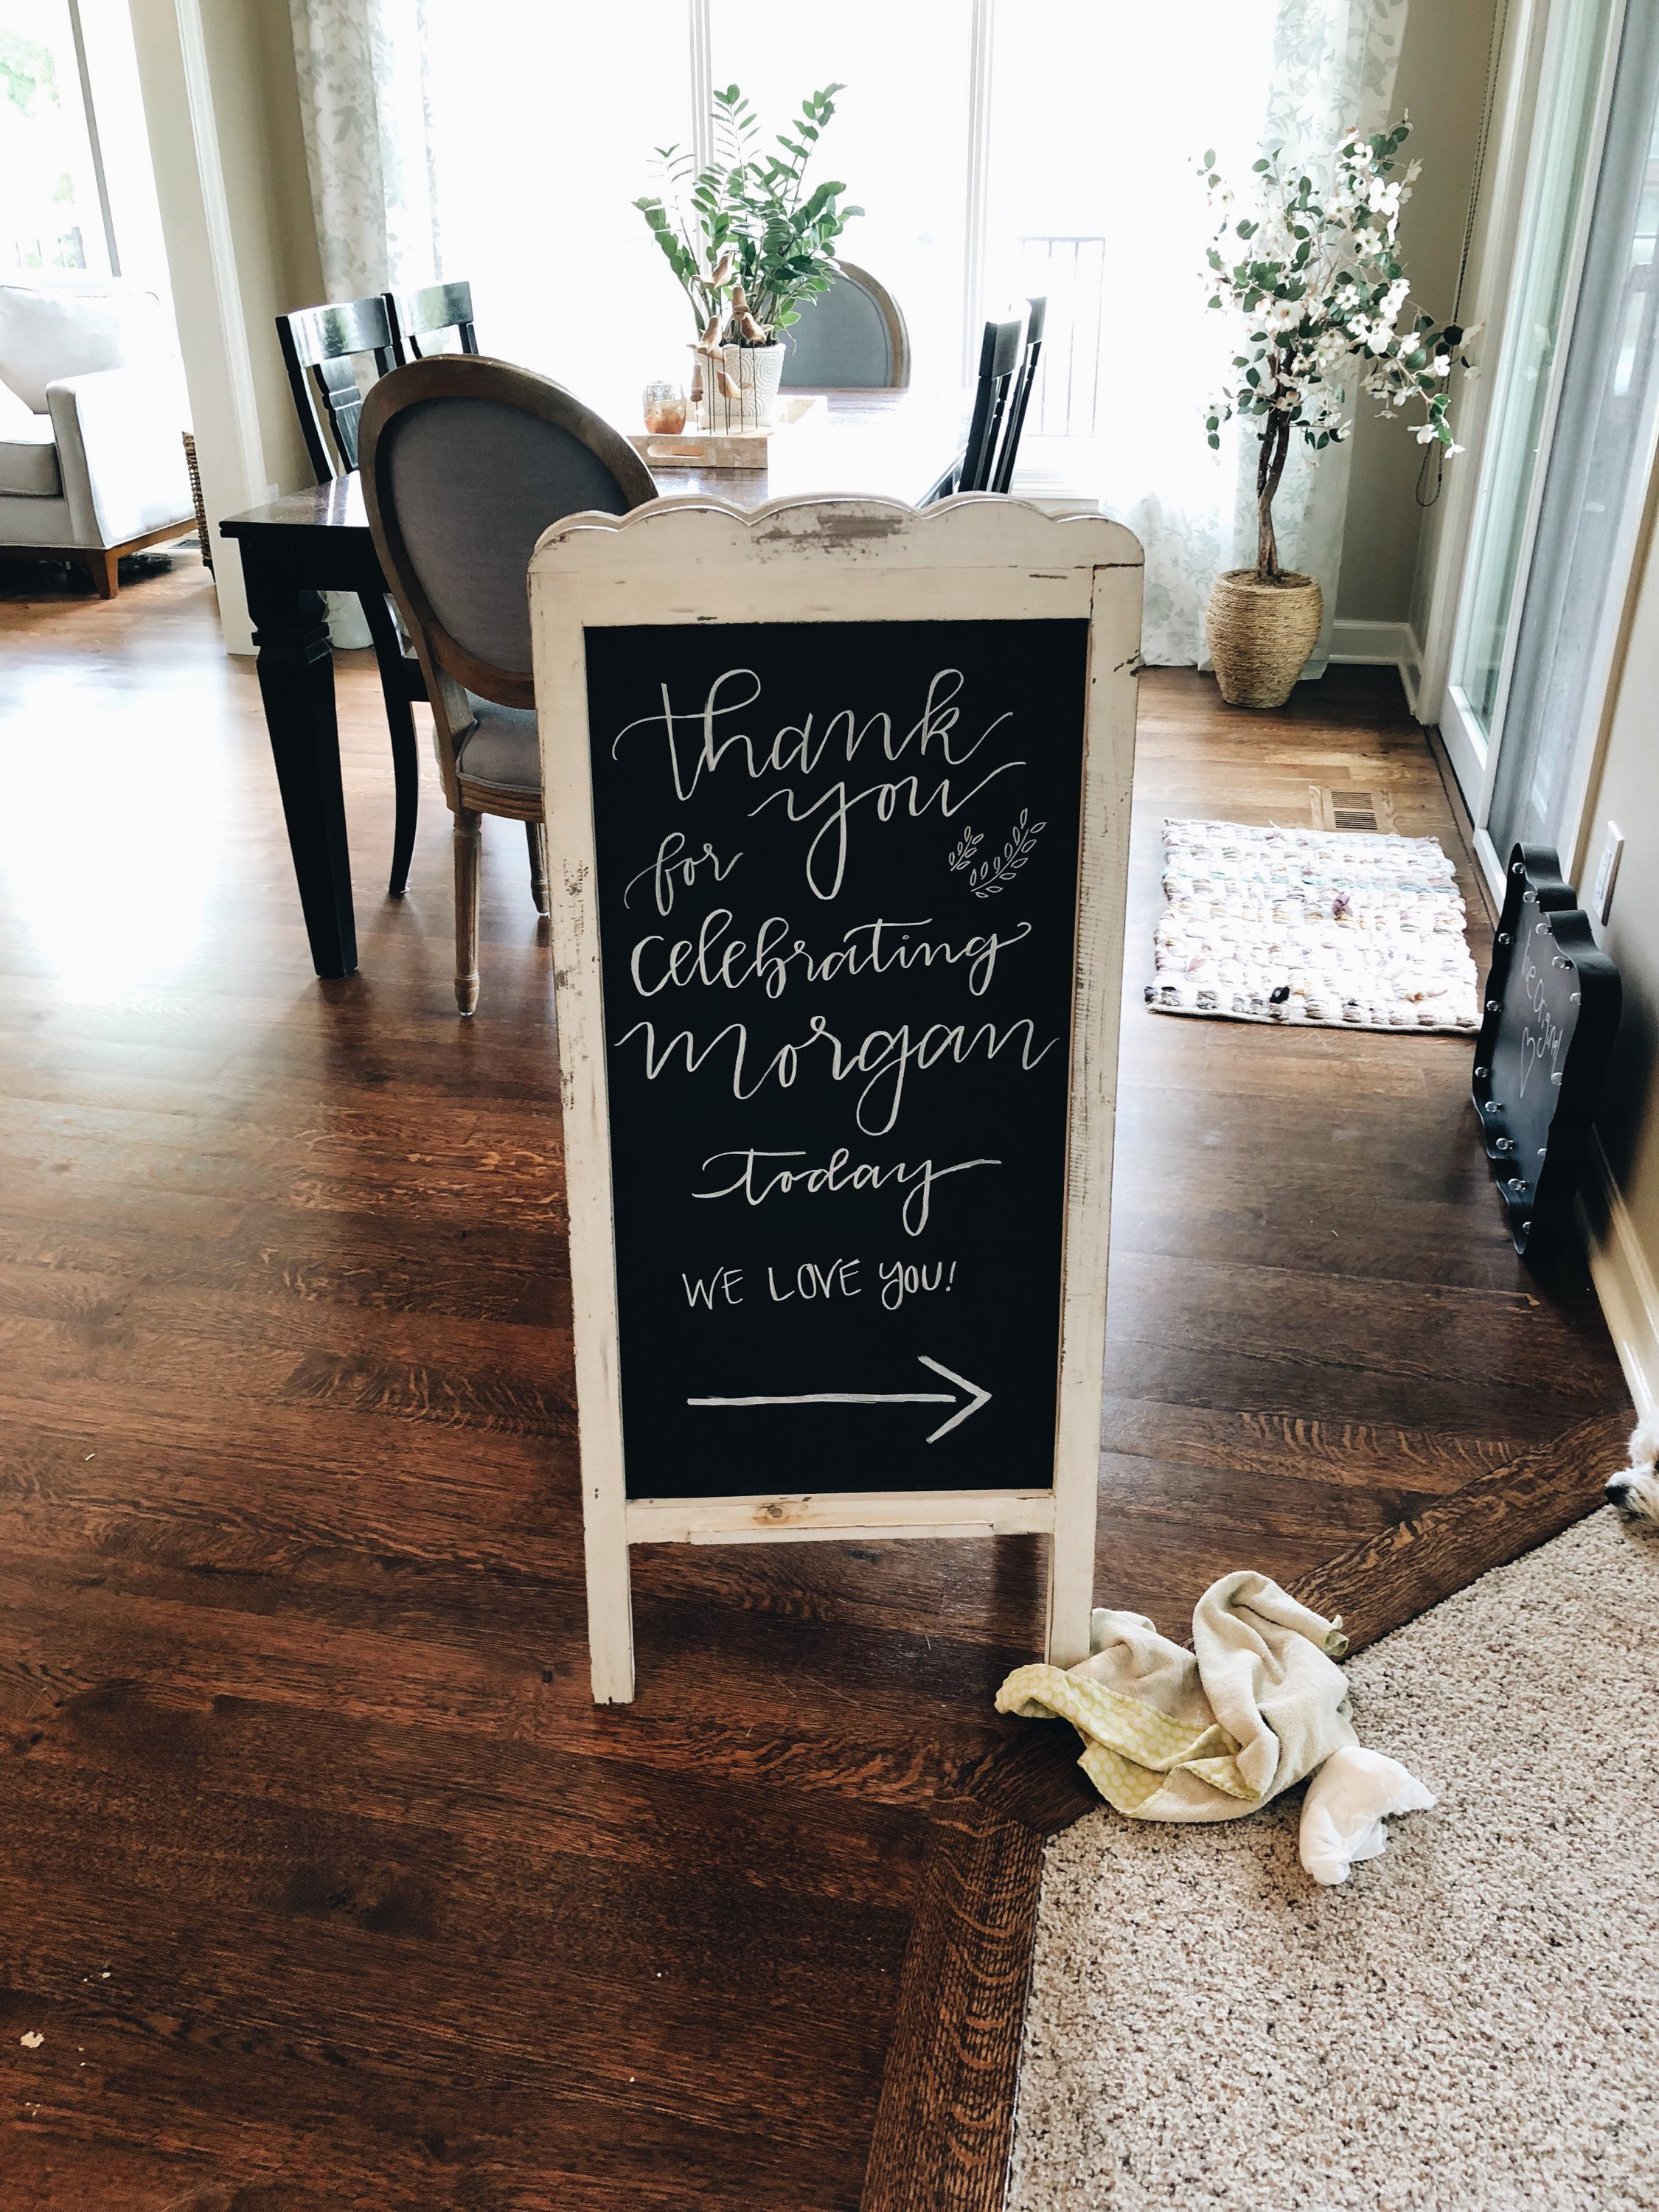 thank
you
for
celebrating
morgan
today
WE LOVE YOU!